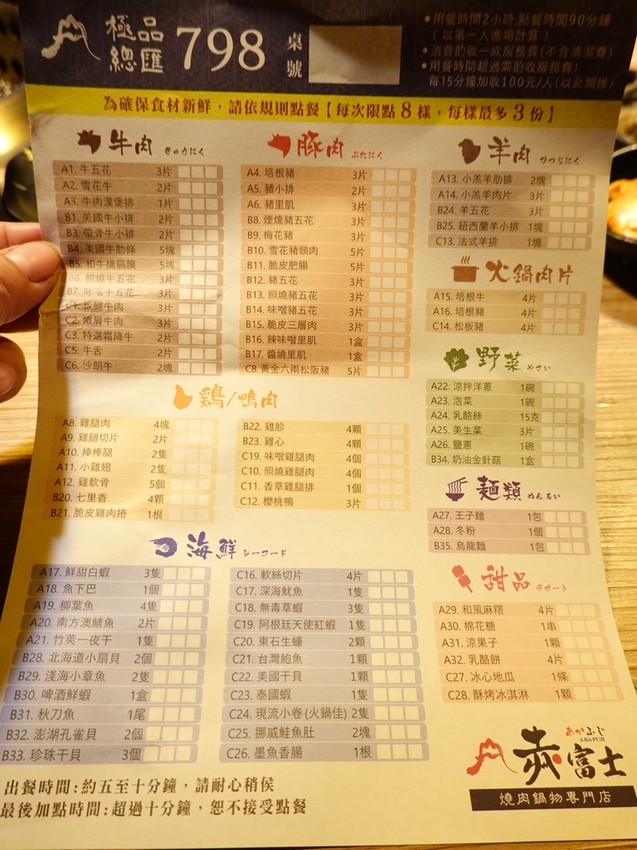 極品
總匯 798 桌號
•用餐時間2小時,點餐時間90分鐘
(以第一人進場計算)
•消費酌收一成服務費(不含清潔費)
•用餐時間超過需酌收服務費:
每15分鐘加收100元/人(以此類推)
為確保食材新鮮,請依規則點餐【每次限點8樣,每樣最多3份】
牛肉 ぎゅうにく
A1. 牛五花 3片
A2. 雪花牛 2片
A3. 牛肉漢堡排 1片
B1. 美國牛小排 2片
B3. 帶骨牛小排 2片
B4. 美國牛肋條 5塊
B5. 和牛橫膈膜 5塊
B6. 照燒牛五花 3片
B7. 味噌牛五花 3片
C1. 板腱牛肉 3片
C2. 嫩肩牛肉 3片
C3. 特選霜降牛 2片
C5. 牛舌 2片
C6. 沙朗牛 2塊
豚肉 ぶたにく
A4. 培根豬 3片
A5. 豬小排 2片
A6. 豬里肌 3片
B8. 煙燻豬五花 3片
B9. 梅花豬 3片
B10. 雪花豬頸肉 5片
B11. 脆皮肥腸 5片
B12. 豬五花 3片
B13. 照燒豬五花 3片
B14. 味噌豬五花 3片
B15. 脆皮三層肉 3片
B16. 辣味噌里肌 1盒
B17. 醬燒里肌 1盒
C8. 黃金六兩松阪豬 5片
羊肉 ひつじにく
A13. 小羔羊肋排 2塊
A14. 小羔羊肉片 3片
B24. 羊五花 3片
B25. 紐西蘭羊小排 1塊
C13. 法式羊排 1塊
火鍋肉片
A15. 培根牛 4片
A16. 培根豬 4片
C14. 松板豬 4片
野菜 やさい
A22. 涼拌洋蔥 1碗
A23. 泡菜 1碗
A24. 乳酪絲 15克
A25. 美生菜 3片
A26. 鹽蔥 1碗
B34. 奶油金針菇 1盒
鶏/鴨肉
A8. 雞腿肉 4塊
A9. 雞腿切片 2片
A10. 棒棒腿 2隻
A11. 小雞翅 2隻
A12. 雞軟骨 5個
B20. 七里香 4顆
B21. 脆皮雞肉捲 1根
B22. 雞胗 4顆
B23. 雞心 4顆
C19. 味噌雞腿肉 4個
C10. 照燒雞腿肉 4個
C11. 香草雞腿排 1個
C12. 櫻桃鴨 3片
麵類 めんるい
A27. 王子麵 1包
A28. 冬粉 1個
B35. 烏龍麵 1包
海鮮 シーフード
A17. 鮮甜白蝦 3隻
A18. 魚下巴 1個
A19. 柳葉魚 4隻
A20. 南方澳鯖魚 2片
A21. 竹筴一夜干 1隻
B28. 北海道小扇貝 2個
B29. 淺海小章魚 2隻
B30. 啤酒鮮蝦 1盒
B31. 秋刀魚 1尾
B32. 澎湖孔雀貝 2個
B33. 珍珠干貝 3個
C16. 軟絲切片 4片
C17. 深海魷魚 1隻
C18. 無毒草蝦 3隻
C19. 阿根廷天使紅蝦 1隻
C20. 東石生蠔 2顆
C21. 台灣鮑魚 1顆
C22. 美國干貝 1顆
C23. 泰國蝦 1隻
C24. 現流小卷(火鍋佳) 2隻
C25. 挪威鮭魚肚 2塊
C26. 墨魚香腸 1根
甜品 デザート
A29. 和風麻糬 4片
A30. 棉花糖 1串
A31. 涼果子 1顆
A32. 乳酪餅 4片
C27. 冰心地瓜 1條
C28. 酥烤冰淇淋 1顆
出餐時間:約五至十分鐘,請耐心稍侯
最後加點時間:超過十分鐘,恕不接受點餐
あかふじ
AKAFUJI
赤富士
燒肉鍋物專門店